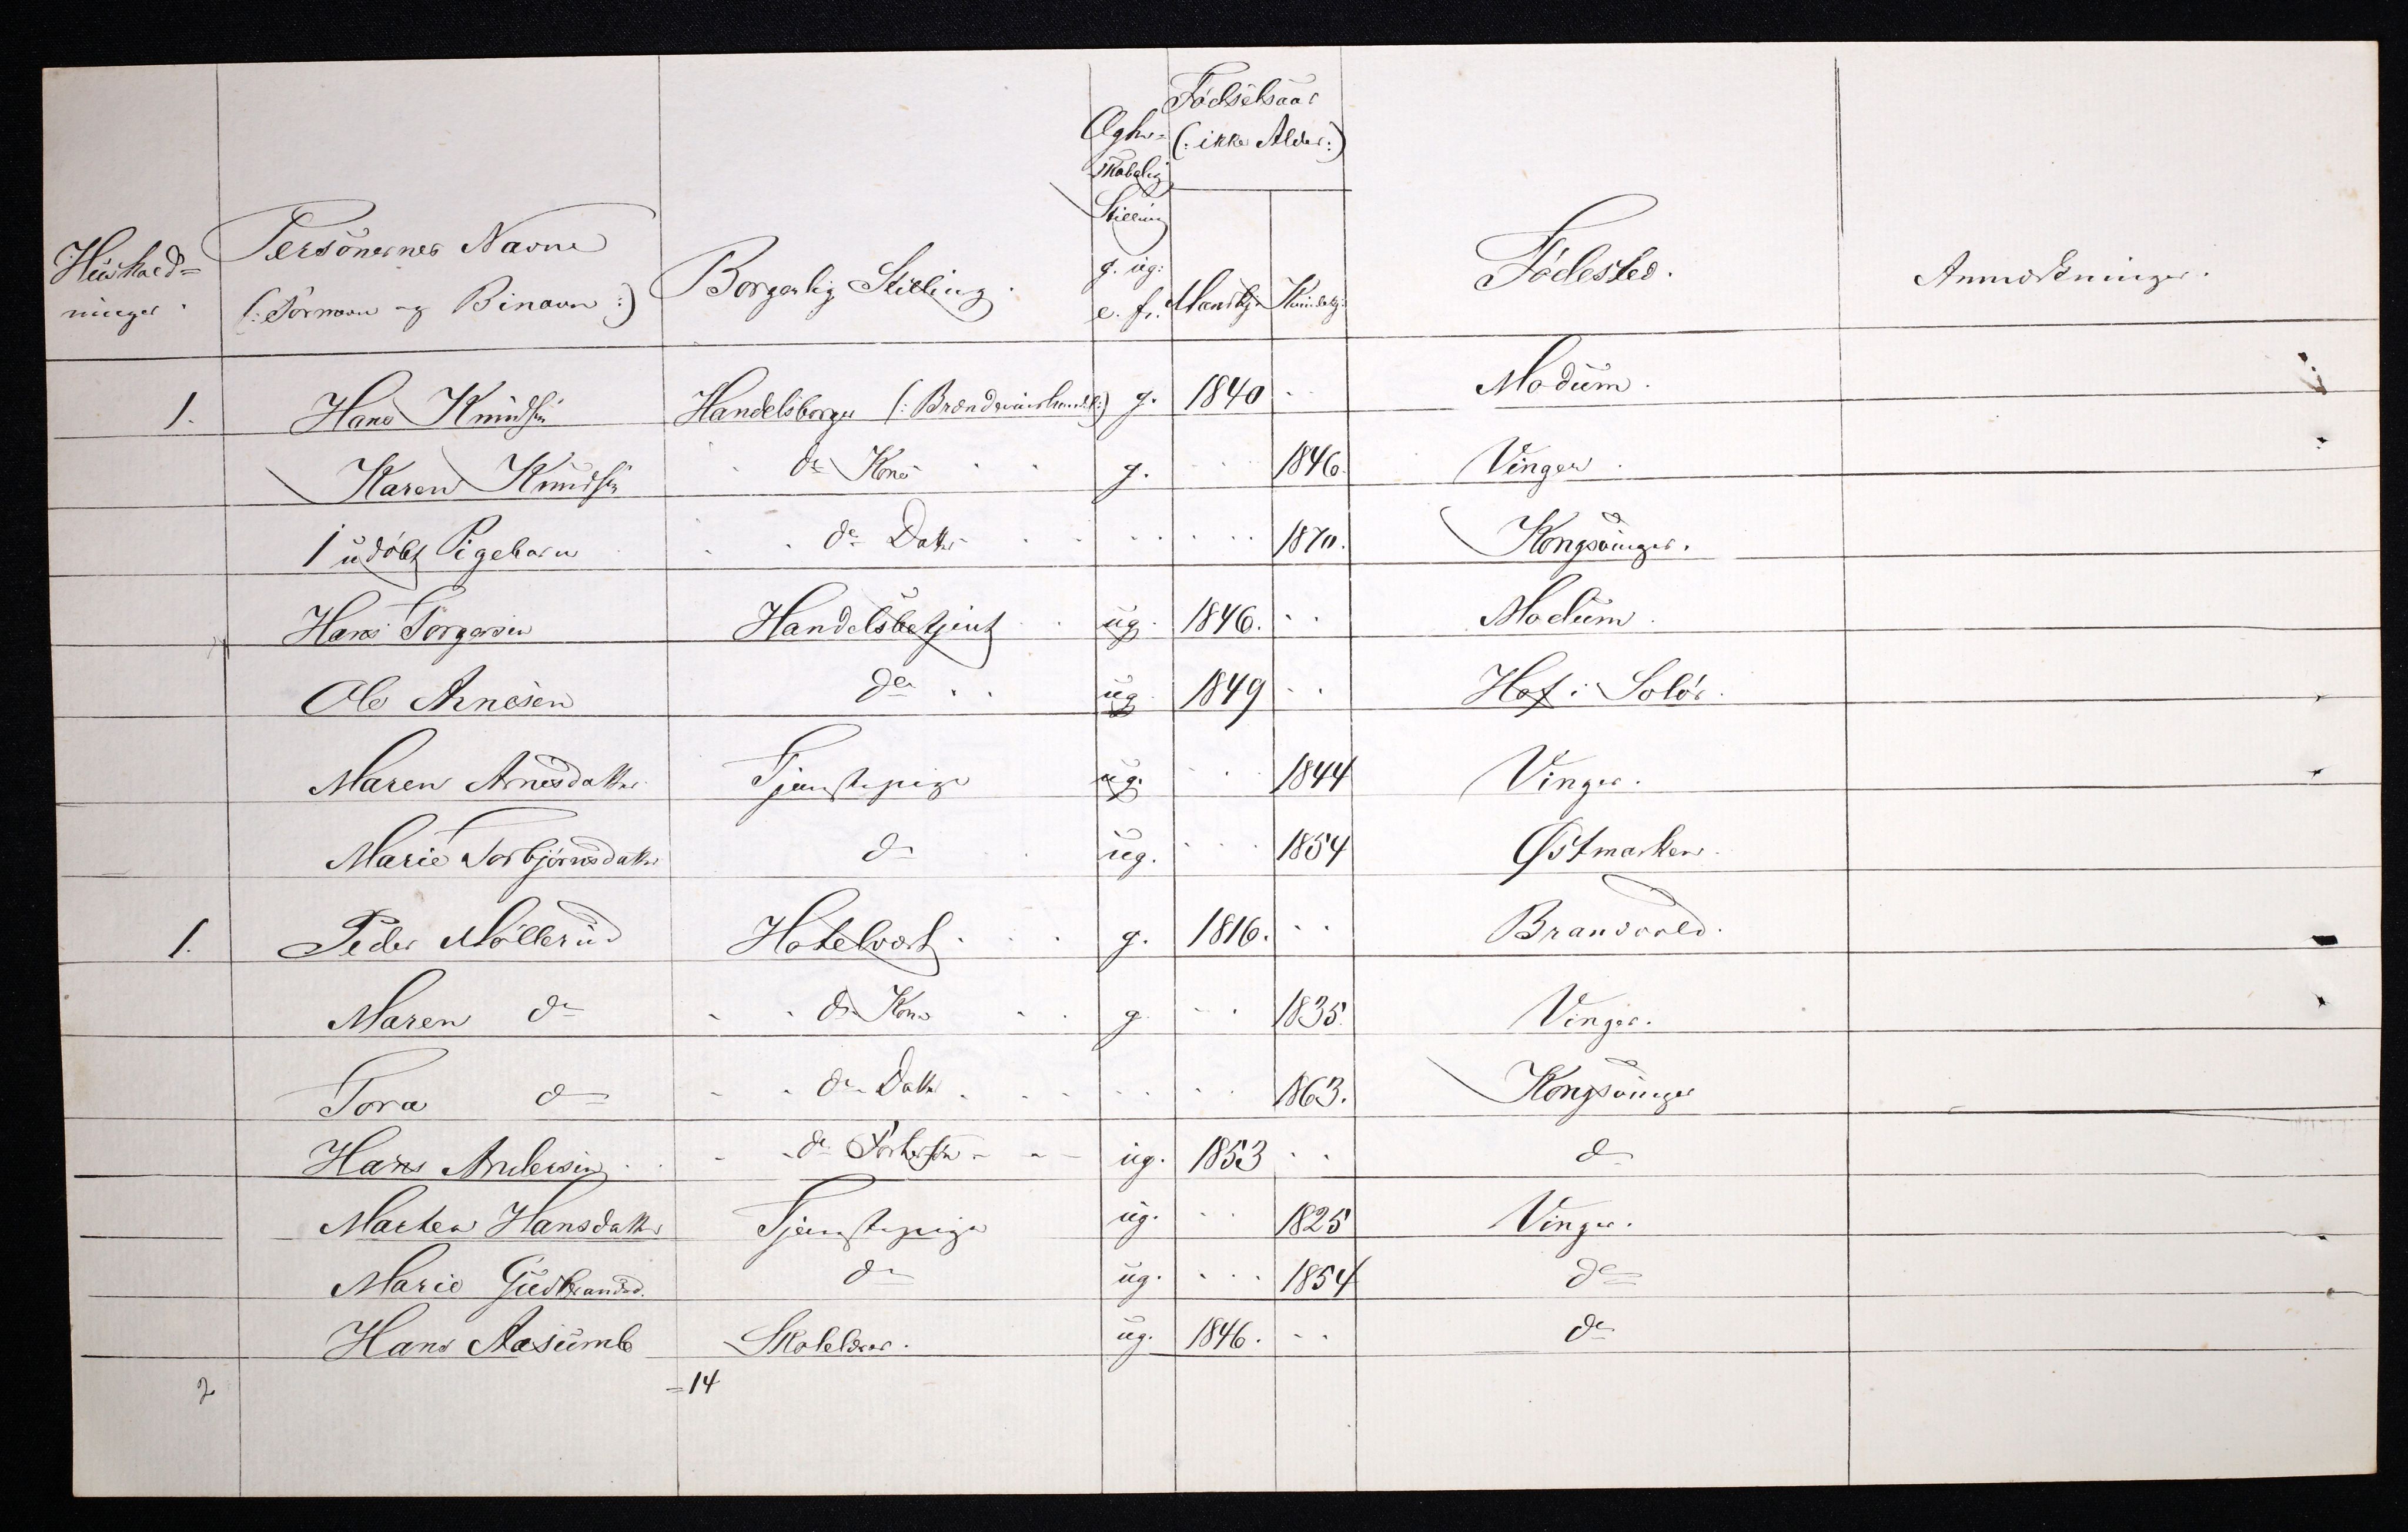 Huushold=
ninger.
Personernes Navne
(: Fornavn og Binavn :)
Borgerlig Stilling.
Ægte=
skabelig
Stilling
g. ug.
e. fr.
Fødselsaar
(: ikke Alder :)
Mandkj. Kvindekj.
Fødested.
Anmærkninger.
1. Hans Knudsen Handelsborger (: Brændevinshandl :) g. 1840 Modum.
Karen Knudsen do Kone g. 1846. Vinger.
1 udøbt Pigebarn do Datter 1870. Kongsvinger.
Hans Torgersen Handelsbetjent ug. 1846. Modum.
Ole Arnesen do ug. 1849 Hof i Solør.
Maren Arnesdatter Tjenestepige ug. 1844 Vinger.
Marie Torbjørnsdatter do ug. 1854 Østmarken.
1. Peder Møllerud Hotelvært g. 1816. Brandvold.
Maren do do Kone g. 1835. Vinger.
Tora do do Datter 1863. Kongsvinger
Hans Andersen do ug. 1853 do
Marthea Hansdatter Tjenestepige ug. 1825 Vinger.
Marie Gudbrandsd. do ug. 1854 do
Hans Aasumb Skolelærer. ug. 1846. do
2 =14